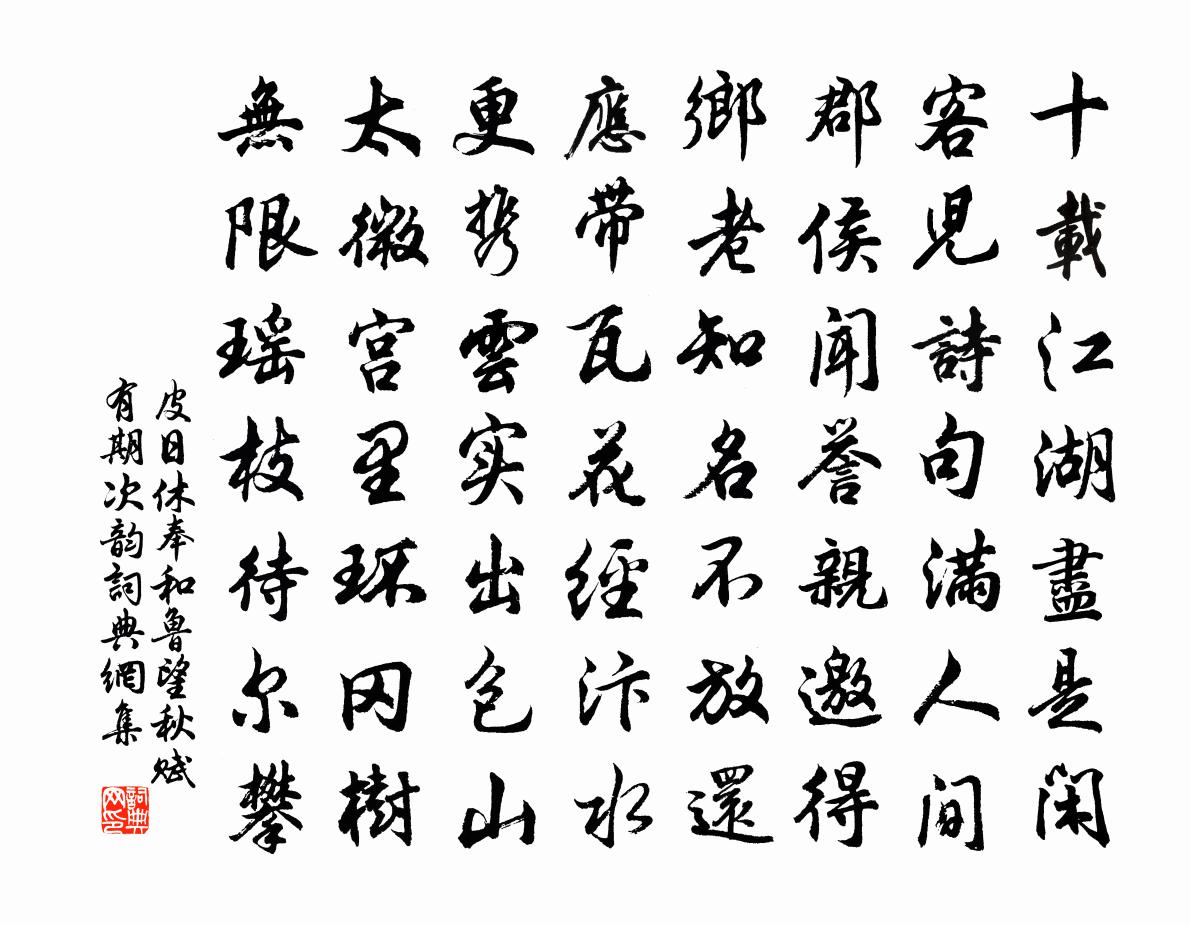 十載江湖盡是閑
客兒詩句滿人間
郡侯聞譽親邀得
鄉老知名不放還
應帶瓦花經汴水
更携雲实出包山
太微宫里环冈樹
無限瑶枝待尔攀
皮日休奉和魯望秋赋
有期次韵詞典網集
詞典
网印